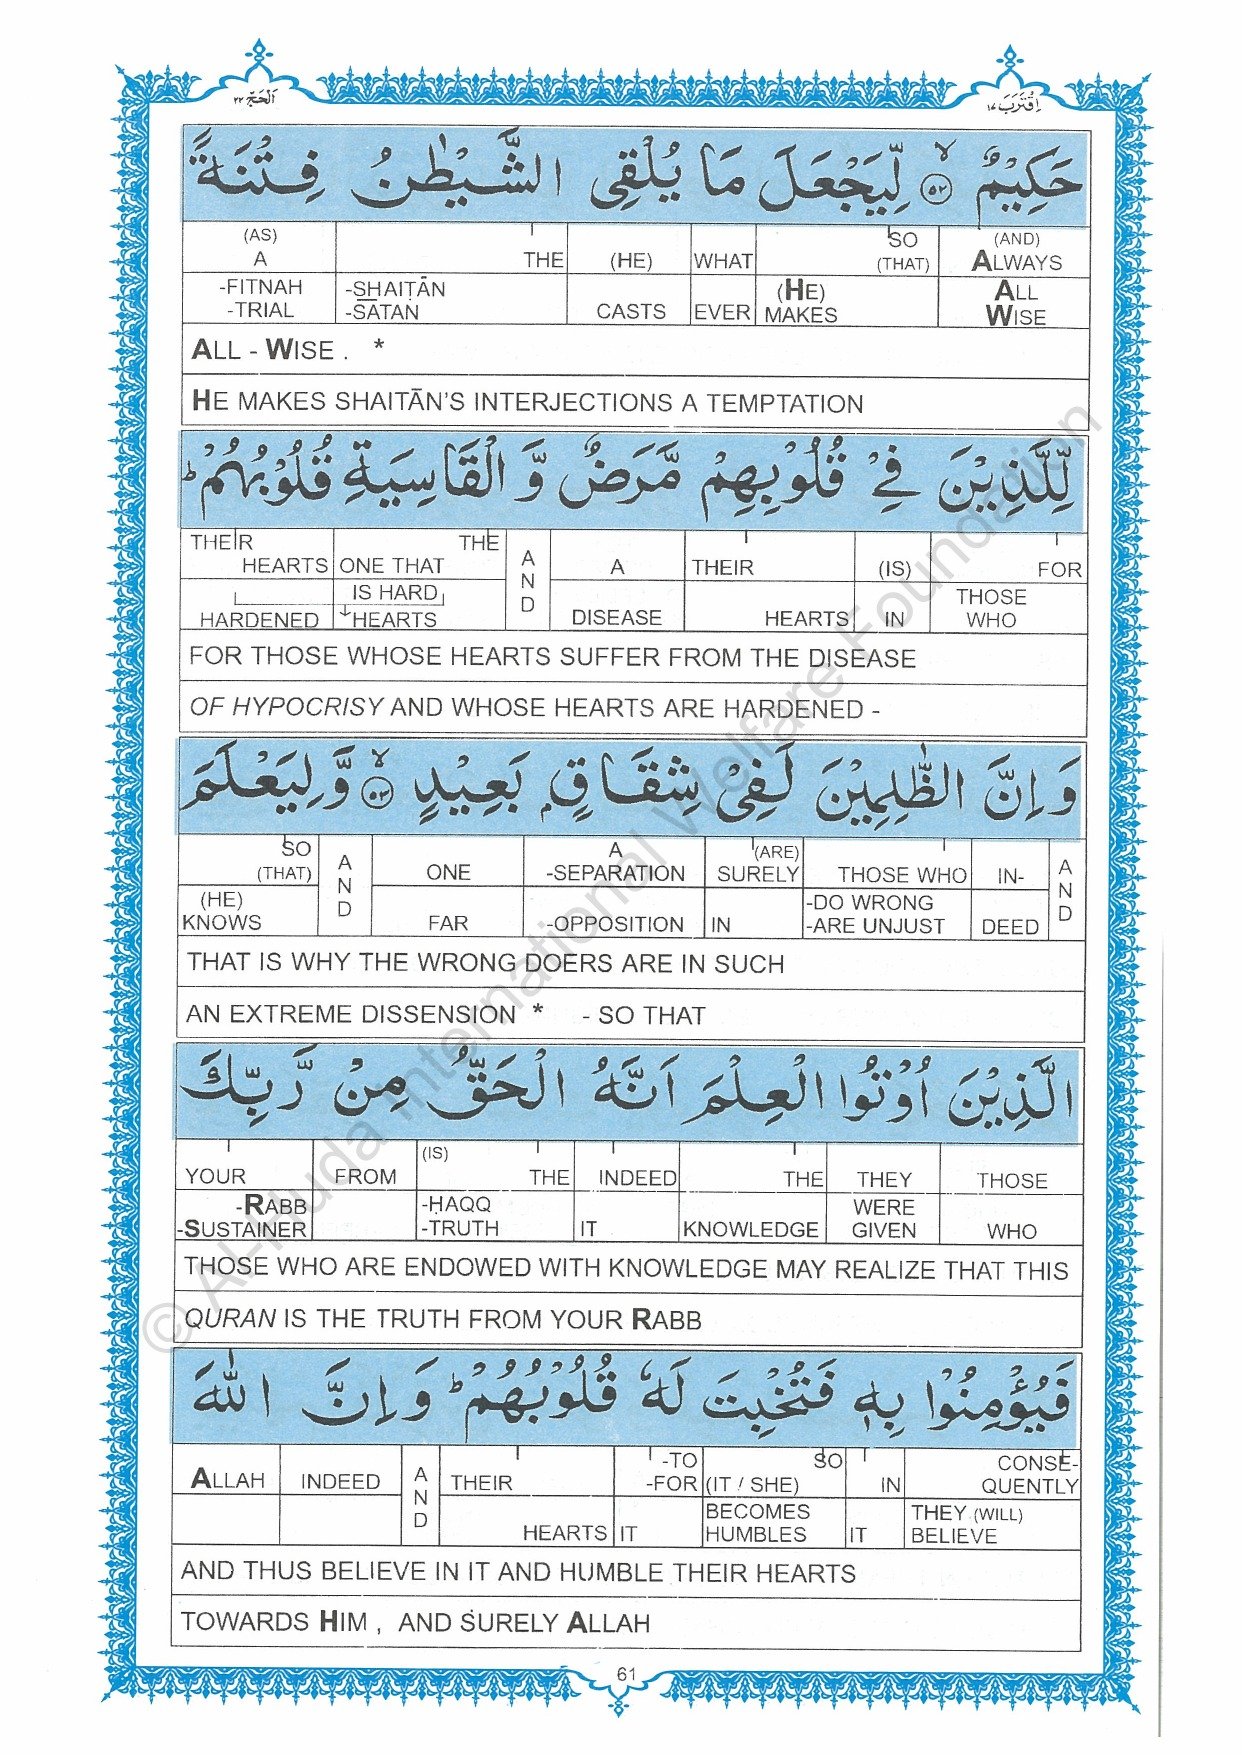 اَلْحَجّ ٢٢
اِقْتَرَبَ ١٧
حَكِيْمٌ ۙ﴿٥٢﴾ لِّيَجْعَلَ مَا يُلْقِى الشَّيْطٰنُ فِتْنَةً
(AS) THE SO (AND)
A (HE) WHAT (THAT) ALWAYS
-FITNAH -SHAIṬĀN (HE) ALL
-TRIAL -SATAN CASTS EVER MAKES WISE
ALL - WISE . *
HE MAKES SHAITĀN'S INTERJECTIONS A TEMPTATION
لِّلَّذِيْنَ فِىْ قُلُوْبِهِمْ مَّرَضٌ وَّ الْقَاسِيَةِ قُلُوْبُهُمْ ؕ
THEIR THE AND A THEIR (IS) FOR
HEARTS ONE THAT
IS HARD THOSE
HARDENED HEARTS DISEASE HEARTS IN WHO
FOR THOSE WHOSE HEARTS SUFFER FROM THE DISEASE
OF HYPOCRISY AND WHOSE HEARTS ARE HARDENED -
وَ اِنَّ الظّٰلِمِيْنَ لَفِىْ شِقَاقٍۭ بَعِيْدٍ ۙ﴿٥٣﴾ وَّ لِيَعْلَمَ
SO AND A (ARE) AND
(THAT) ONE -SEPARATION SURELY THOSE WHO IN-
(HE) -DO WRONG
KNOWS FAR -OPPOSITION IN -ARE UNJUST DEED
THAT IS WHY THE WRONG DOERS ARE IN SUCH
AN EXTREME DISSENSION * - SO THAT
الَّذِيْنَ اُوْتُوا الْعِلْمَ اَنَّهُ الْحَقُّ مِنْ رَّبِّكَ
(IS)
YOUR FROM THE INDEED THE THEY THOSE
-RABB -ḤAQQ WERE
-SUSTAINER -TRUTH IT KNOWLEDGE GIVEN WHO
THOSE WHO ARE ENDOWED WITH KNOWLEDGE MAY REALIZE THAT THIS
QURAN IS THE TRUTH FROM YOUR RABB
فَيُؤْمِنُوْا بِهٖ فَتُخْبِتَ لَهٗ قُلُوْبُهُمْ ؕ وَ اِنَّ اللّٰهَ
-TO SO CONSE-
ALLAH INDEED AND THEIR -FOR (IT / SHE) IN QUENTLY
BECOMES THEY (WILL)
HEARTS IT HUMBLES IT BELIEVE
AND THUS BELIEVE IN IT AND HUMBLE THEIR HEARTS
TOWARDS HIM , AND SURELY ALLAH
61
© Al-Huda International Welfare Foundation